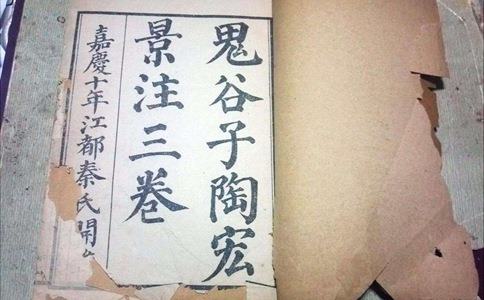 鬼谷子陶宏
景注三卷
嘉慶十年江都秦氏開